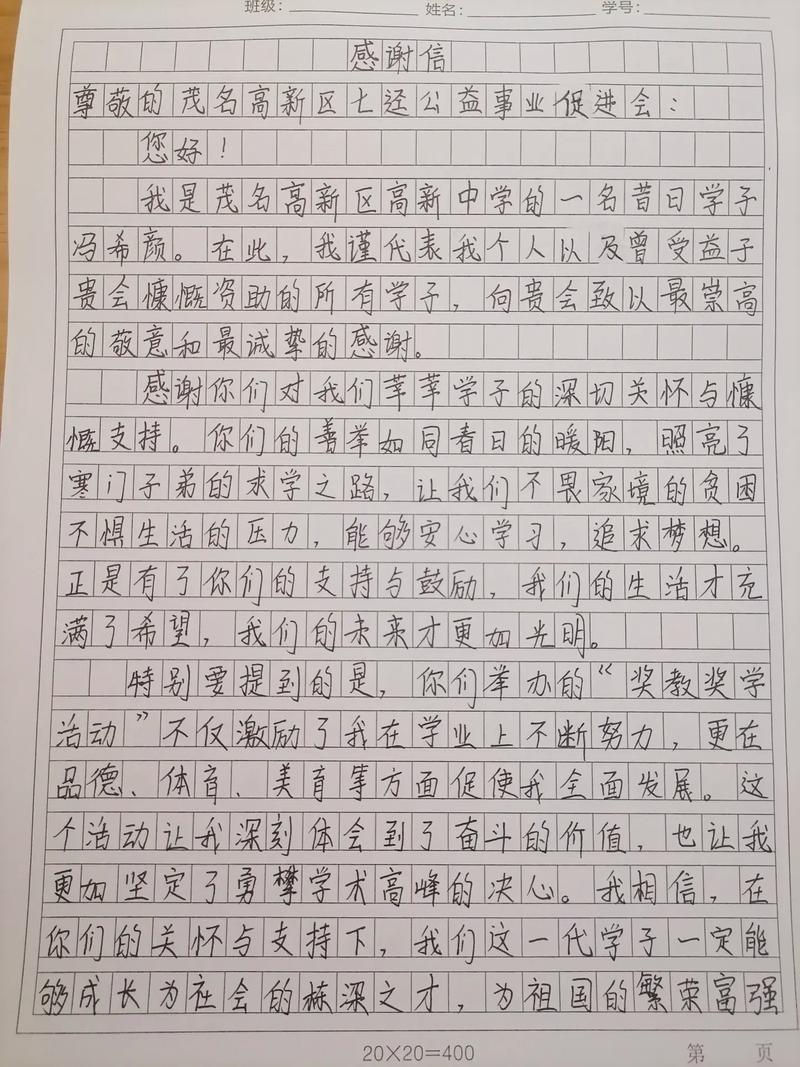 班级: 姓名: 学号:
感谢信
尊敬的茂名高新区七迳公益事业促进会:
您好!
我是茂名高新区高新中学的一名昔日学子
冯希颜。在此,我谨代表我个人以及曾受益于
贵会慷慨资助的所有学子,向贵会致以最崇高
的敬意和最诚挚的感谢。
感谢你们对我们莘莘学子的深切关怀与慷
慨支持。你们的善举如同春日的暖阳,照亮了
寒门子弟的求学之路,让我们不畏家境的贫困
不惧生活的压力,能够安心学习,追求梦想。
正是有了你们的支持与鼓励,我们的生活才充
满了希望,我们的未来才更加光明。
特别要提到的是,你们举办的“奖教奖学
活动”不仅激励了我在学业上不断努力,更在
品德、体育、美育等方面促使我全面发展。这
个活动让我深刻体会到了奋斗的价值,也让我
更加坚定了勇攀学术高峰的决心。我相信,在
你们的关怀与支持下,我们这一代学子一定能
够成长为社会的栋深之才,为祖国的繁荣富强
20×20=400 第 页